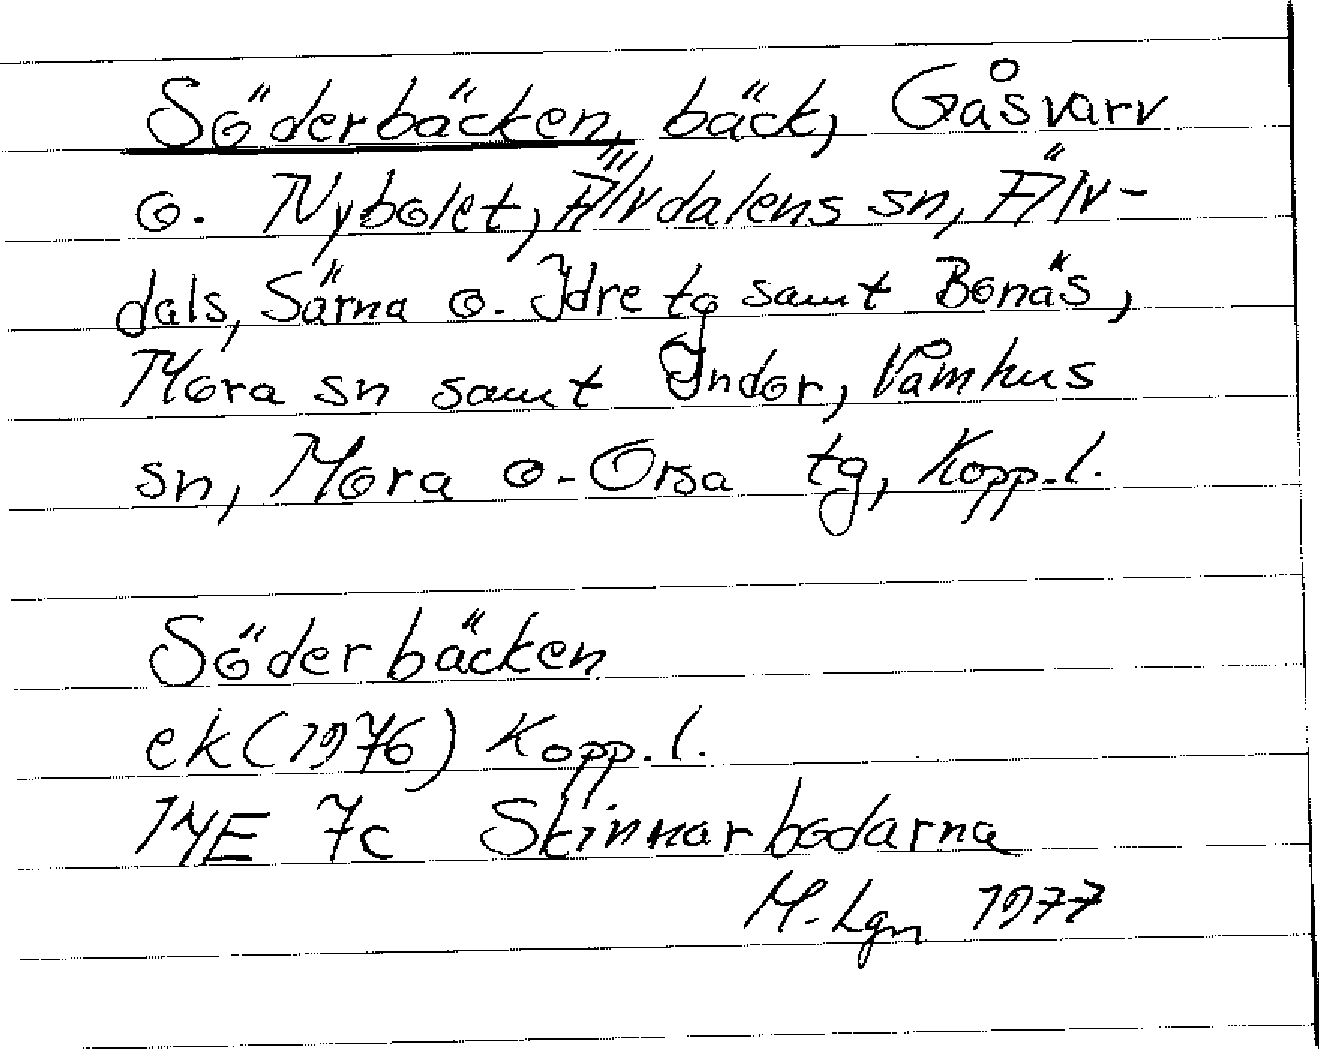 Söderbäcken, bäck, Gåsvarv
o. Nybolet, Älvdalens sn, Älv-
dals, Särna o. Idre tg samt Bonäs,
Mora sn samt Indor, Våmhus
sn, Mora o. Orsa tg, Kopp.l.
Söderbäcken
ek (1976) Kopp.l.
14E 7c Skinnarbodarna
M. Lgn 1977